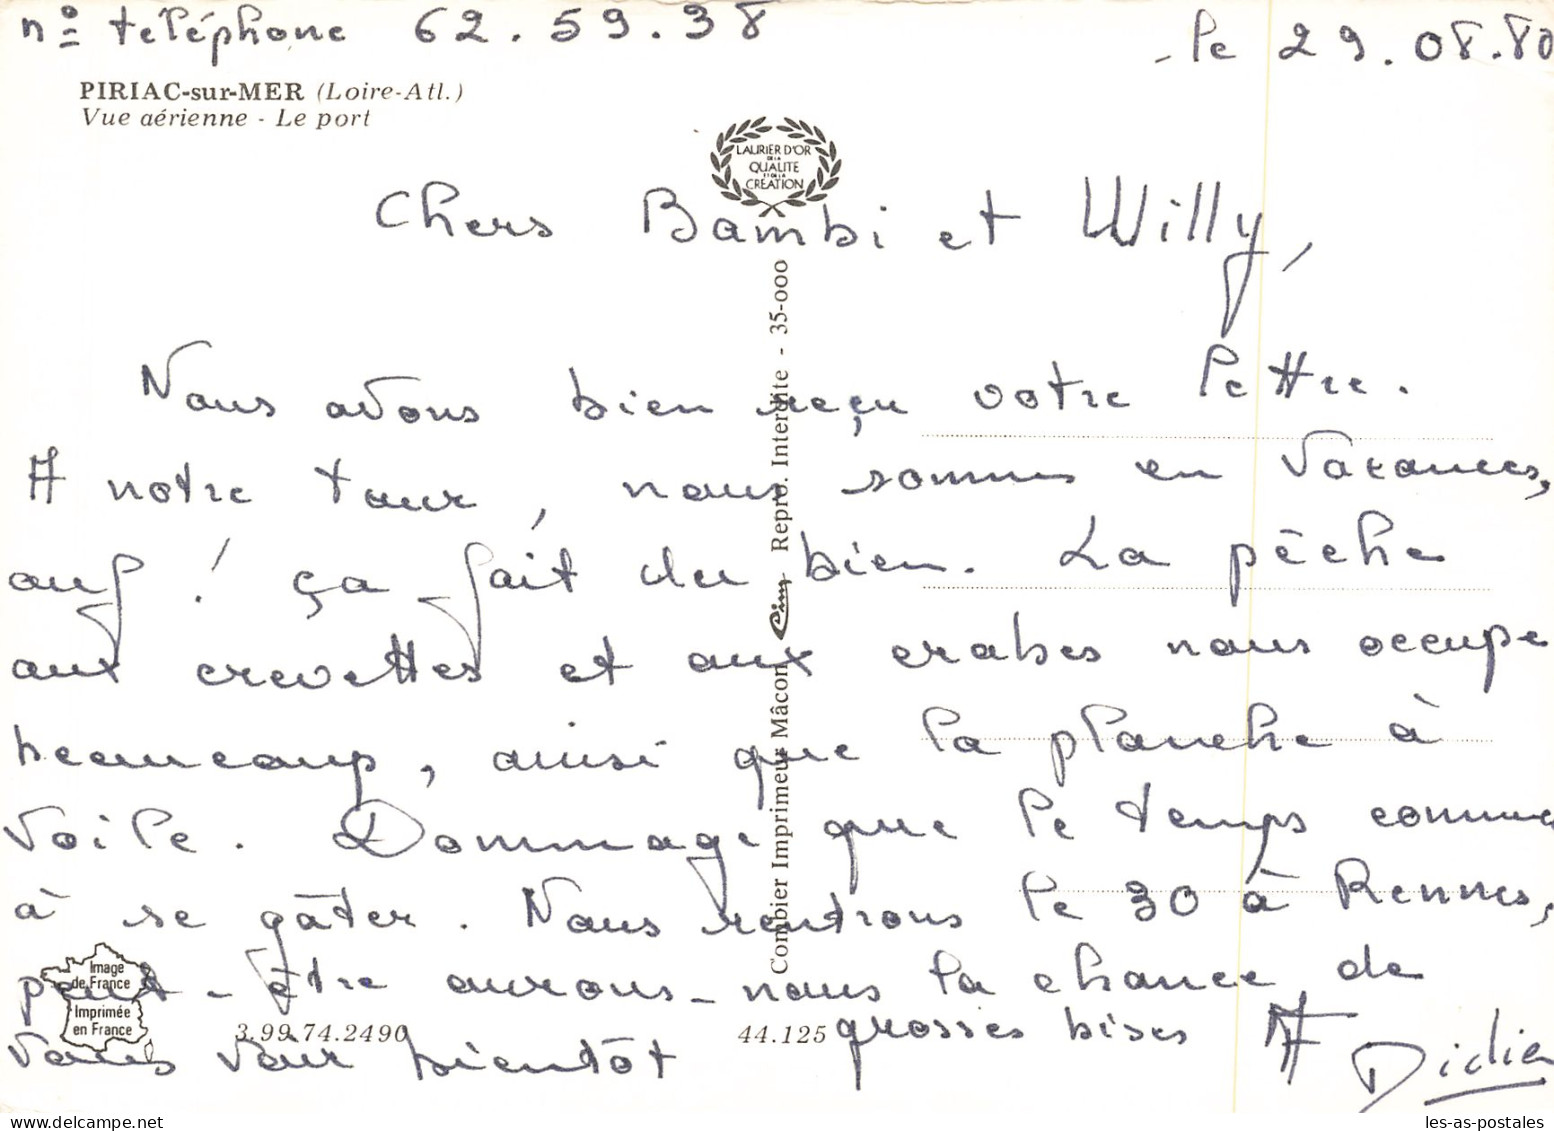 n° téléphone 62.59.38
- le 29.08.80
PIRIAC-sur-MER (Loire-Atl.)
Vue aérienne - Le port
LAURIER D'OR
DE LA
QUALITE
ET DE LA
CREATION
Chers Bambi et Willy,
Nous avons bien reçu votre lettre.
A notre tour, nous sommes en vacances,
ouf ! ça fait du bien. La pêche
aux crevettes et aux crabes nous occupe
beaucoup, ainsi que la planche à
voile. Dommage que le temps commence
à se gâter. Nous rentrons le 30 à Rennes,
peut-être aurons-nous la chance de
vous voir bientôt
grosses bises
Didier
Combier Imprimeur Mâcon Cim Repro. Interdite - 35-000
Image
de France
Imprimée
en France
3.99.74.2490
44.125
les-as-postales